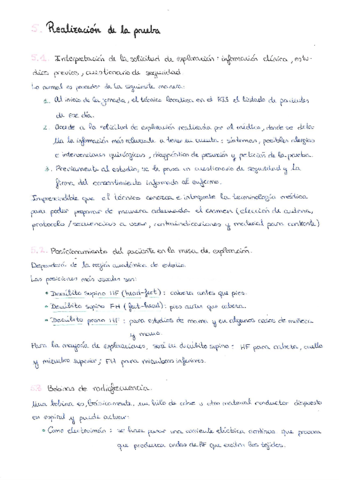 5. Realización de la prueba
5.1. Interpretación de la solicitud de exploración: información clínica, estu-
dios previos, cuestionario de seguridad
Lo normal es proceder de la siguiente manera:
1. Al inicio de la jornada, el técnico localiza en el RIS el listado de pacientes
de ese día.
2. Accede a la solicitud de exploración realizada por el médico, donde se deta-
lla la información más relevante a tener en cuenta: síntomas, posibles alergias
e intervenciones quirúrgicas, diagnóstico de presunción y petición de la prueba.
3. Previamente al estudio, se le pasa un cuestionario de seguridad y la
firma del consentimiento informado al enfermo.
Imprescindible que el técnico conozca e interprete la terminología médica
para poder preparar de manera adecuada el examen (elección de antena,
protocolo/secuencias a usar, contraindicaciones y material para contraste)
5.2. Posicionamiento del paciente en la mesa de exploración.
Dependerá de la región anatómica de estudio.
Las posiciones más usuales son:
• Decúbito supino HF (head-feet): cabeza antes que pies.
• Decúbito supino FH (feet-head): pies antes que cabeza.
• Decúbito prono HF: para estudios de mama y en algunos casos de muñeca
y mano.
Para la mayoría de exploraciones, será en decúbito supino: HF para cabeza, cuello
y miembro superior; FH para miembros inferiores.
5.3 Bobinas de radiofrecuencia.
Una bobina es, básicamente, un hilo de cobre u otro material conductor dispuesto
en espiral y puede actuar:
• Como electroimán: se hace pasar una corriente eléctrica continua que provoca
que produzca ondas de RF que exciten los tejidos.